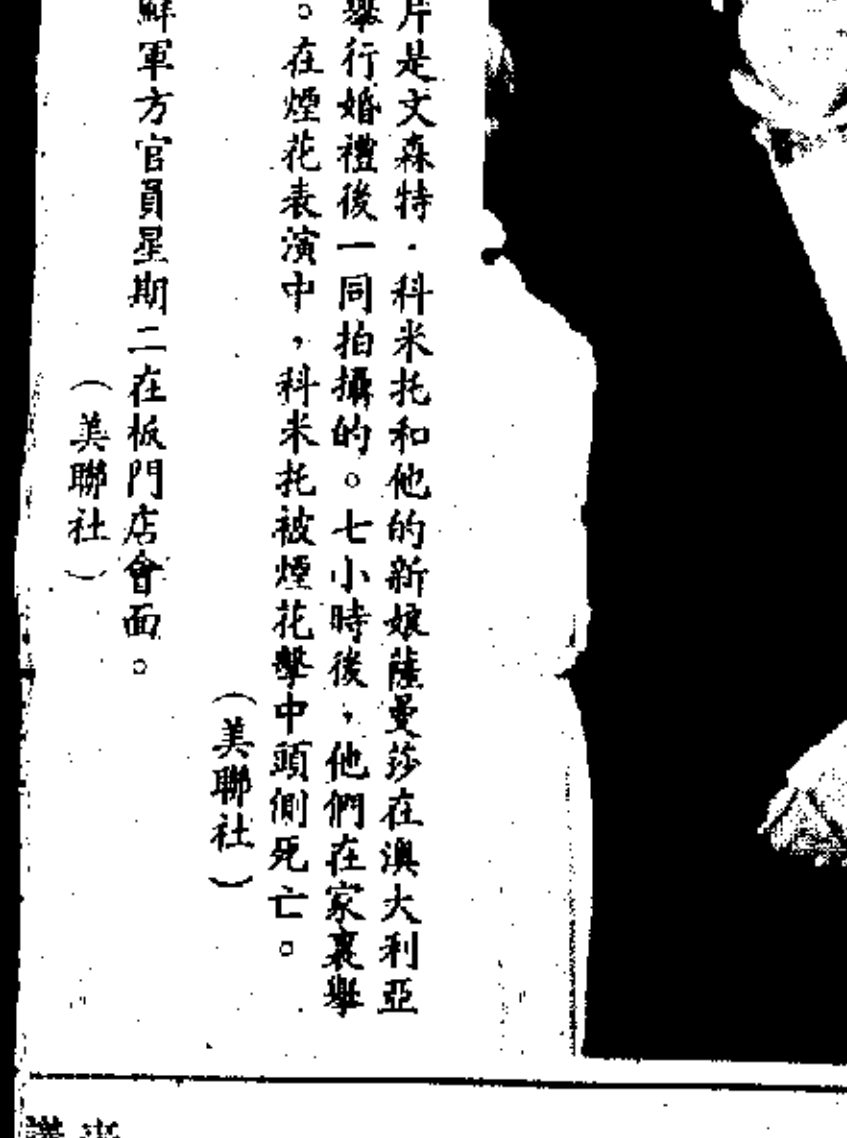 片是文森特·科米托和他的新娘薩曼莎在澳大利亞
舉行婚禮後一同拍攝的。七小時後，他們在家裏舉
。在煙花表演中，科米托被煙花擊中頭側死亡。
（美聯社）
鮮軍方官員星期二在板門店會面。
（美聯社）